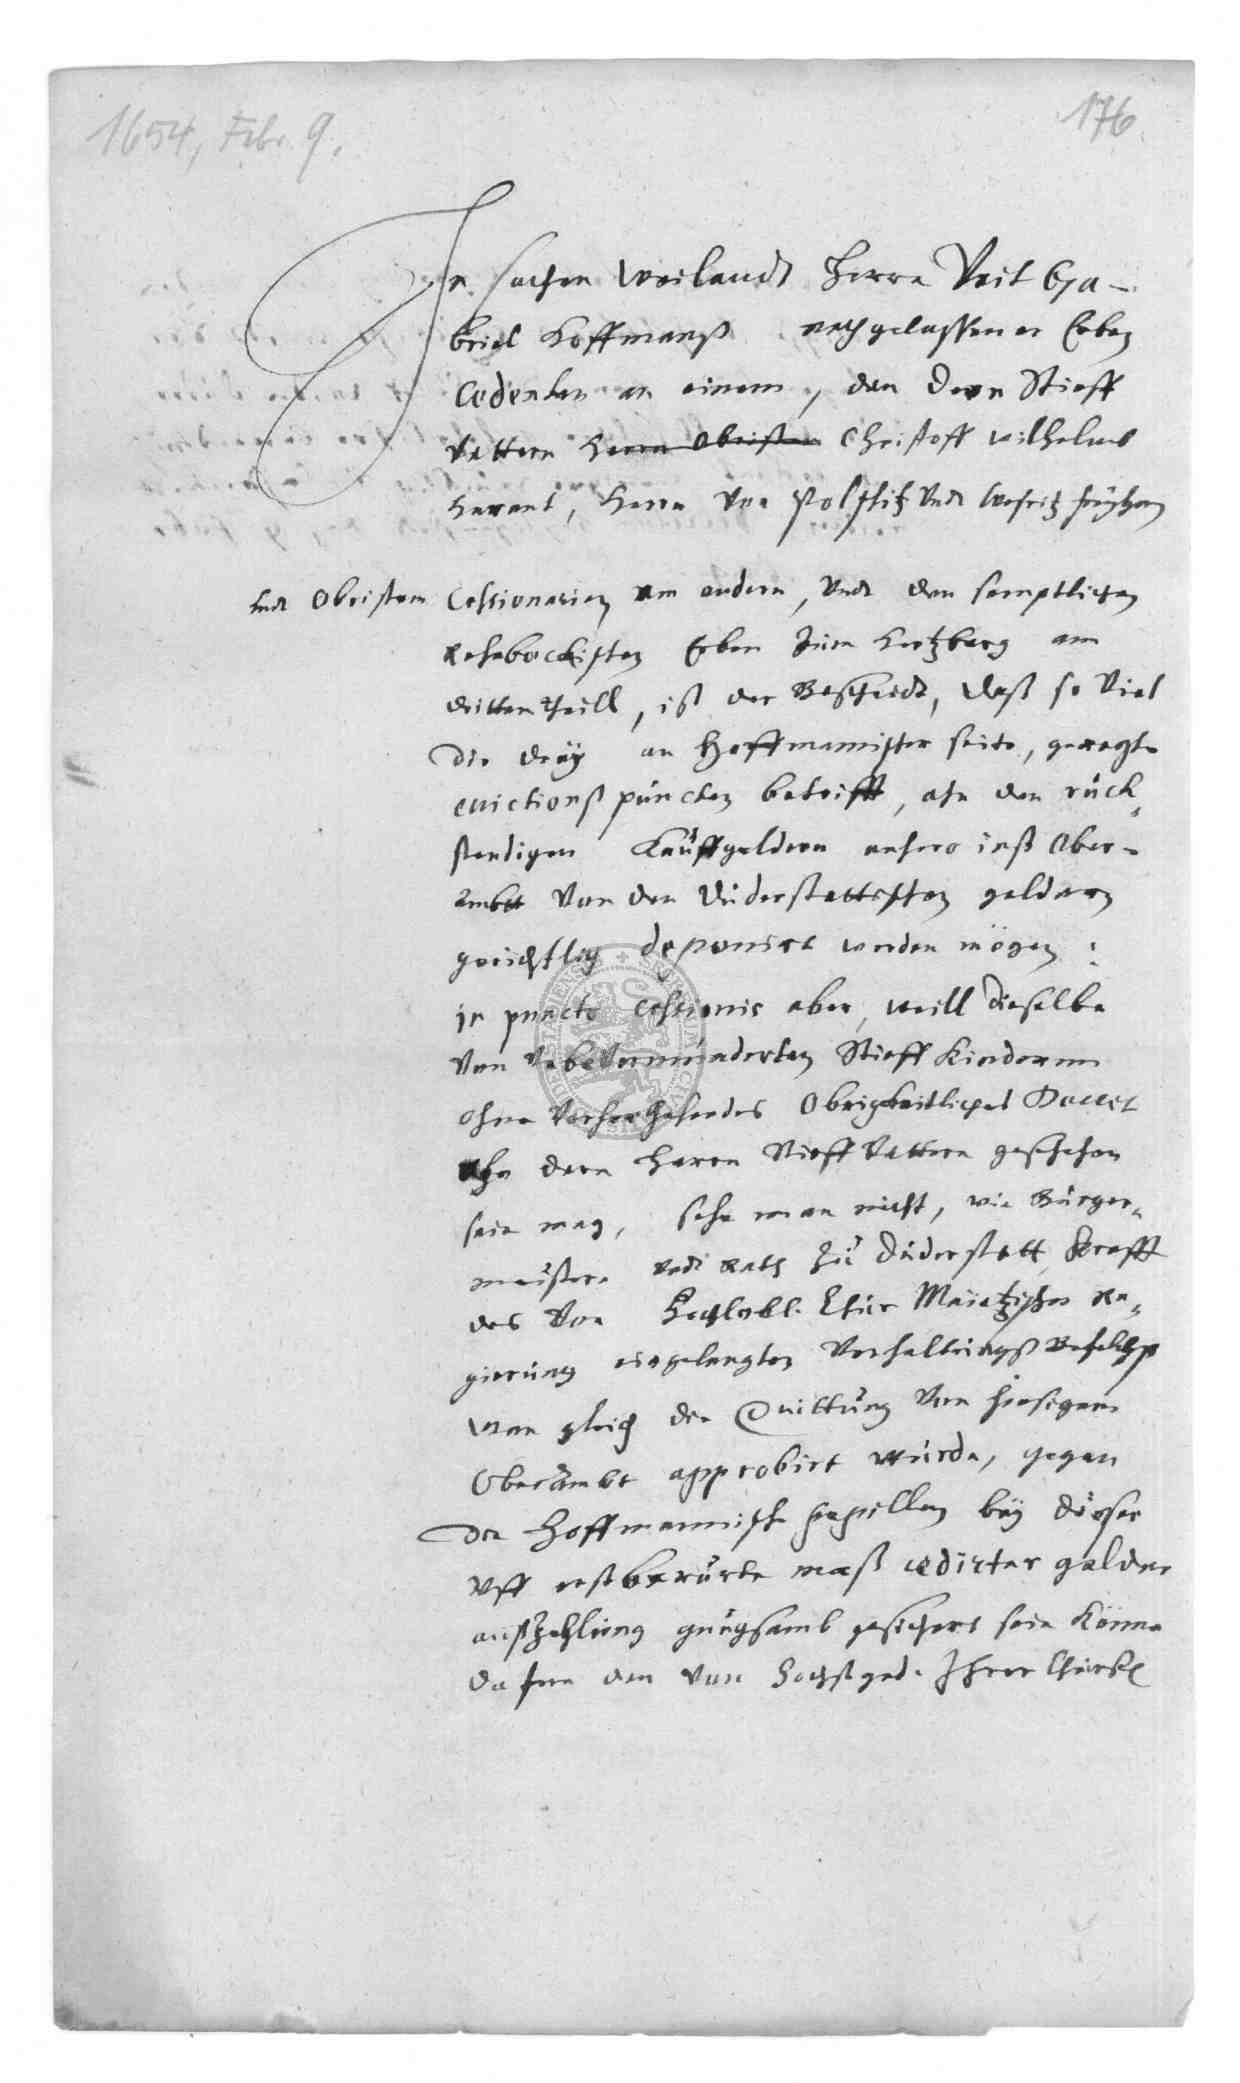 1654, Febr. 9.
176
In sachen Weilandt Herrn Veit Ga-
briel Hoffmanß nachgelassener Erben
Cedenten an einem, den deren Stieff
Vattern Herrn Obristen Christoff Wilhelmb
Harant, Herrn von Polschitz undt Weseritz freyhern
undt Obristen Cessionarien am andern, undt den semptlichen
Rehebockischen Erben zum Hertzberg am
dritten theill, ist der Bescheidt, daß so viel
die drey an Hoffmannischer seite, geregte
evictionß puncten betrifft, ahn den rück-
stendigen Kauffgeldern anhero inß Ober-
ambtt von den Duderstattischen geldern
gerichtlich deponirt werden mögen:
in puncto cessionis aber, weill dieselbe
von unbevormünderten Stieff Kindern
ohne vorhergehendes Obrigkeitliches Decret
ahn deren Herrn Stieff Vattern geschehen
sein mag, sehe man nicht, wie Bürger-
meistere undt Rath zu Duderstatt Krafft
des von Hochlobl. Chur Maintzischer Re-
gierung eingelangten Verhaltungß Befelchß
wan gleich die Quittung von hiesigem
Oberambt approbirt würde, gegen
die Hoffmannische pupillen bey dieser
uff erstberürte maß cedirter gelder
außzehlung gnugsamb gesichert sein könne
dafern den von Hochstged. Ihrer Churfl